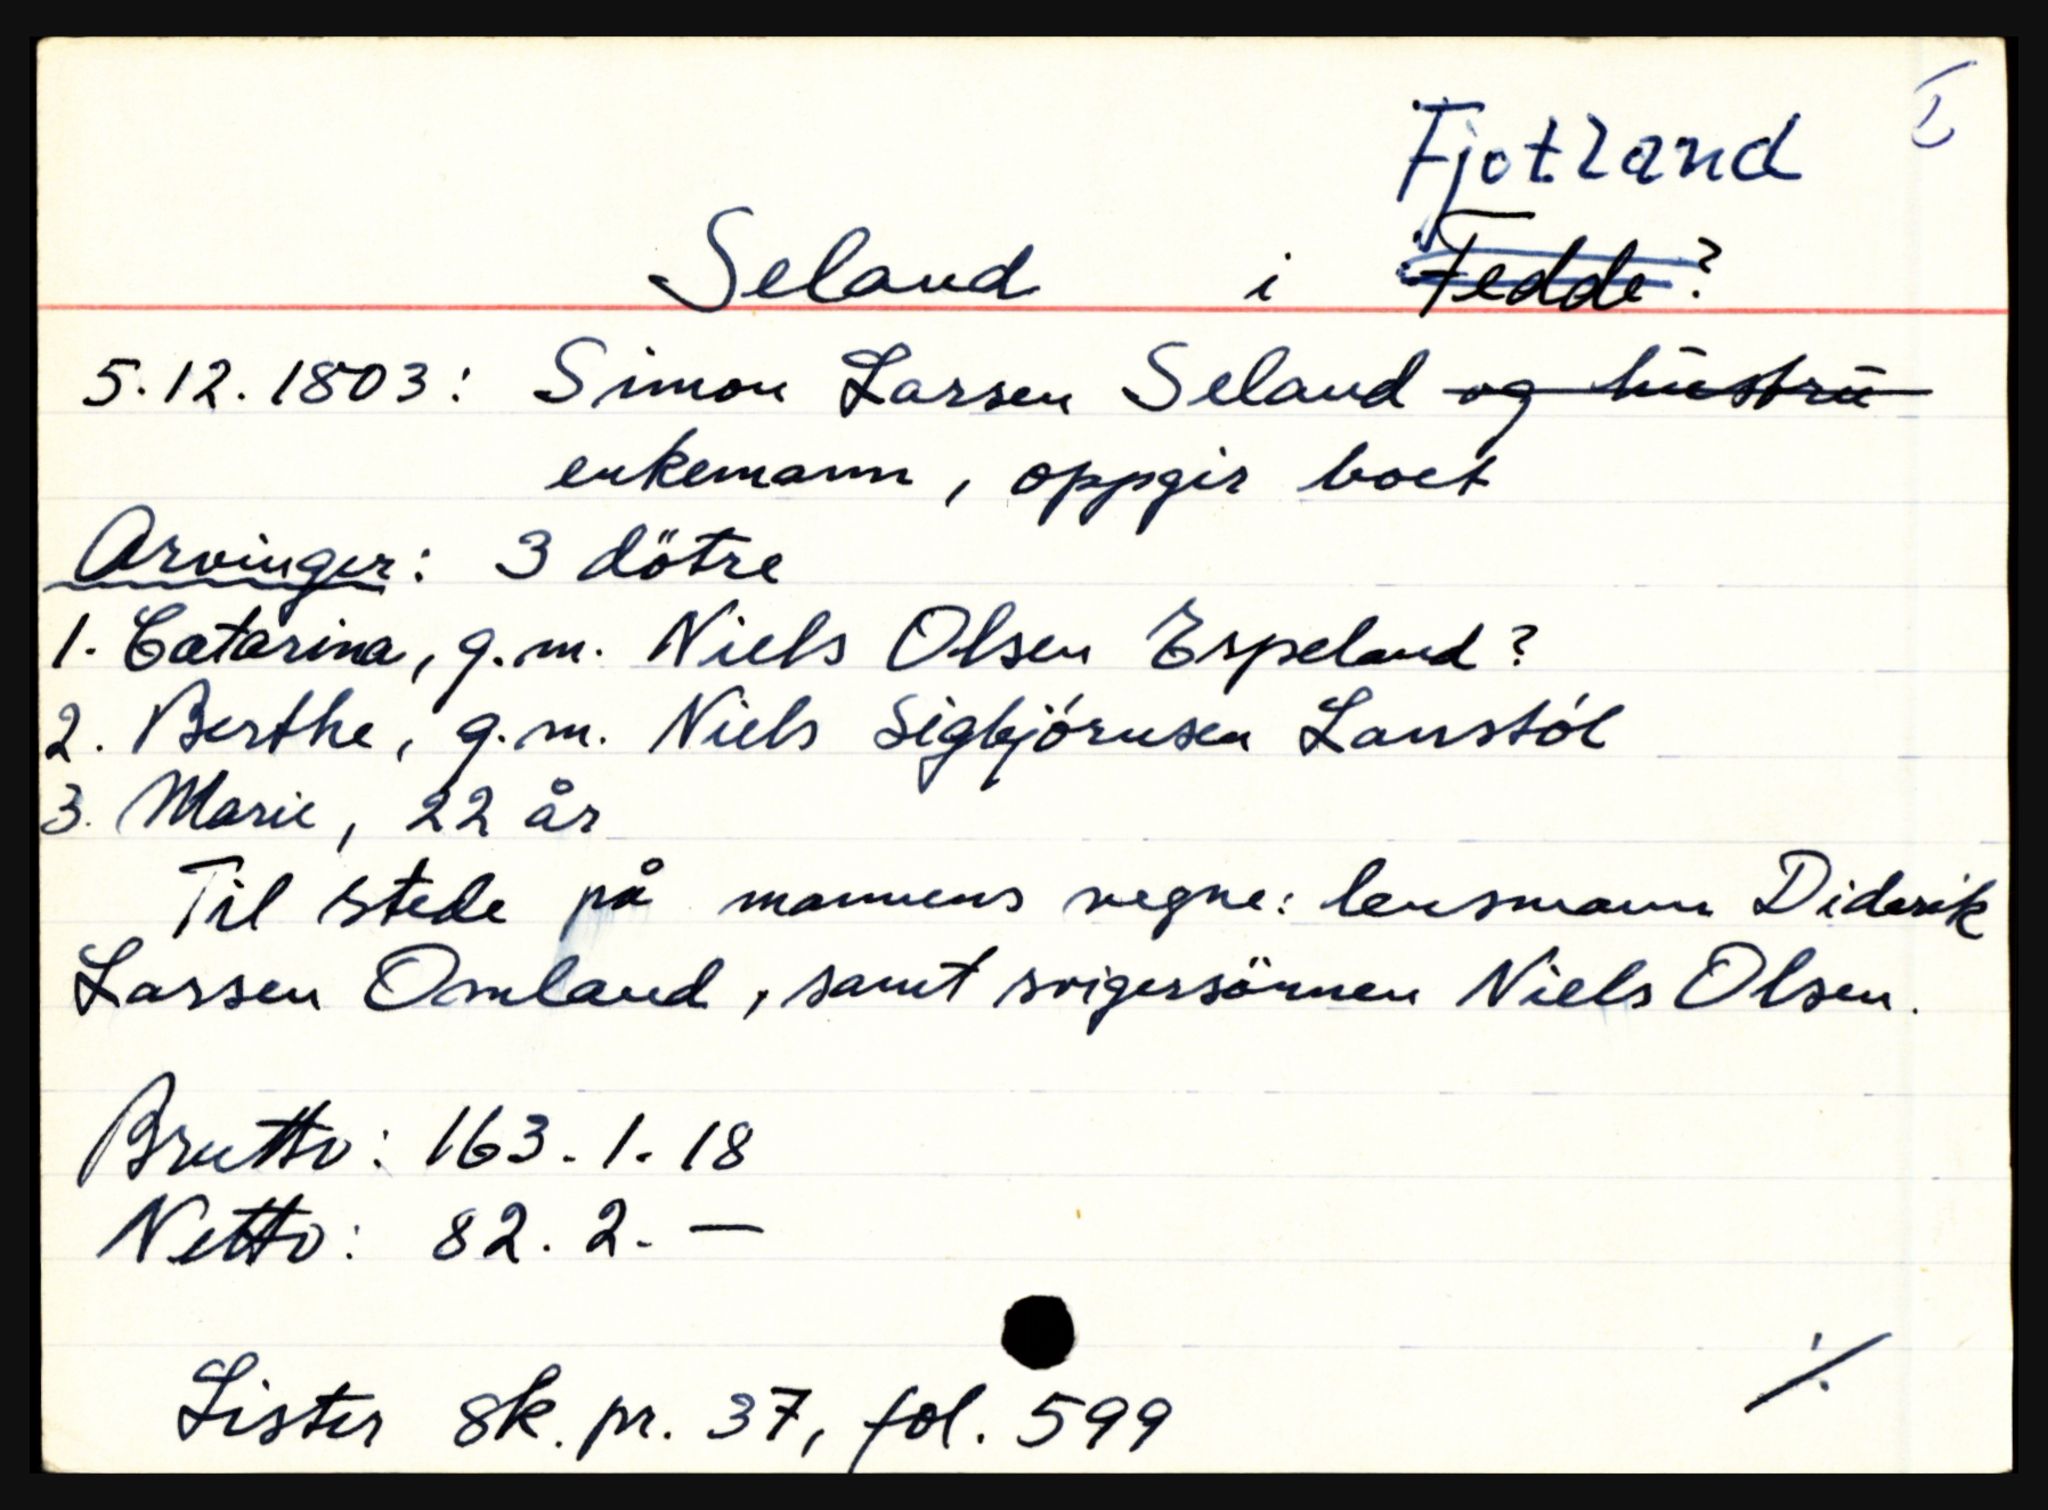 I
Fjotland
Seland i Fedde?
5.12.1803: Simon Larsen Seland og hustru
enkemann, oppgir boet
Arvinger: 3 dötre
1. Catarina, g.m. Niels Olsen Espeland?
2. Berthe, g.m. Niels Sigbjörnsen Lanstöl
3. Marie, 22 år
Til stede på mannens vegne: lensmann Diderik
Larsen Omland, samt svigersönnen Niels Olsen.
Brutto: 163.1.18
Netto: 82.2.—
Lister sk. pr. 37, fol. 599
./.